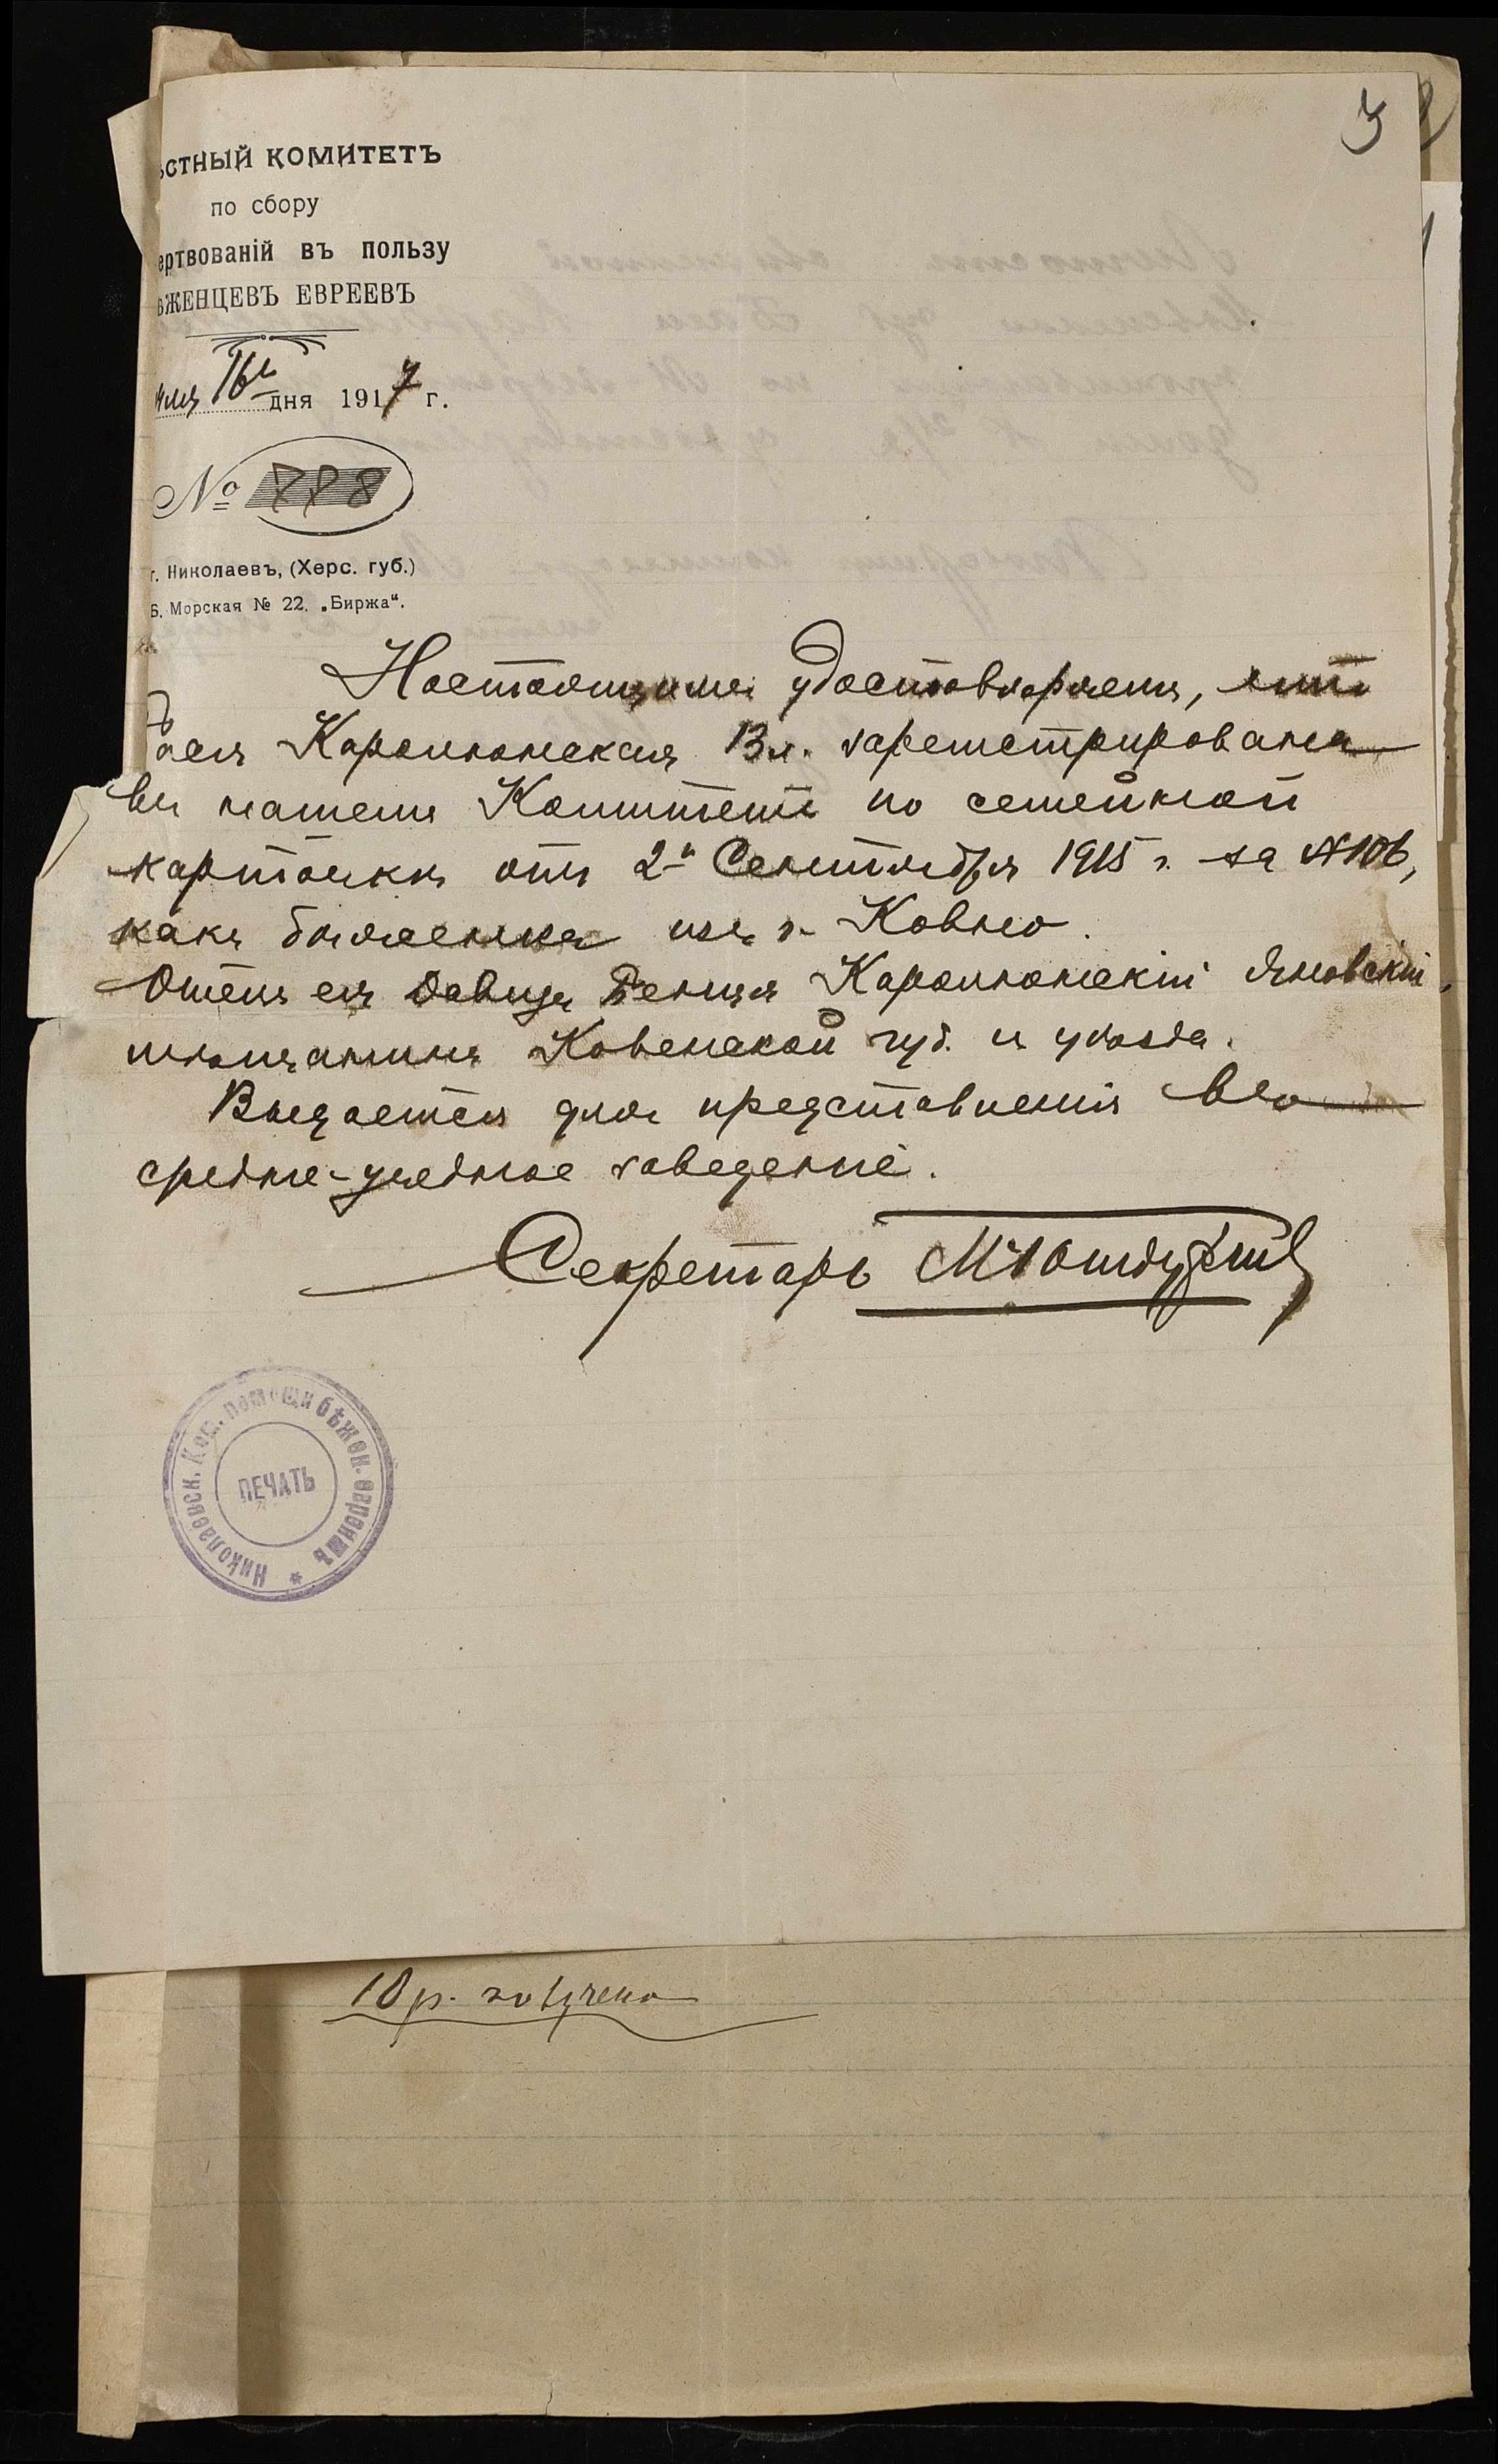 3
ѣстный КОМИТЕТЪ
по сбору
ертвованій въ пользу
ѣЖЕНЦЕВЪ ЕВРЕЕВЪ
16го дня 1917 г.
№ 778
г. Николаевъ, (Херс. губ.)
Б. Морская № 22. „Биржа“.
Настоящимъ удостовѣряемъ, что
Карклинская 13 л. зарегистрирована
въ нашемъ Комитетѣ по семейной
карточкѣ отъ 2го Сентября 1915 г. за № 106,
какъ бѣженка изъ г. Ковно.
Отецъ ея Давидъ Бенція Яновскій
мѣщанинъ Ковенской губ. и уѣзда.
Выдается для представленія въ
средне-учебное заведеніе.
Секретарь
Николаевск. Ком. помощи бѣжен. евреямъ
ПЕЧАТЬ
10 р. получено